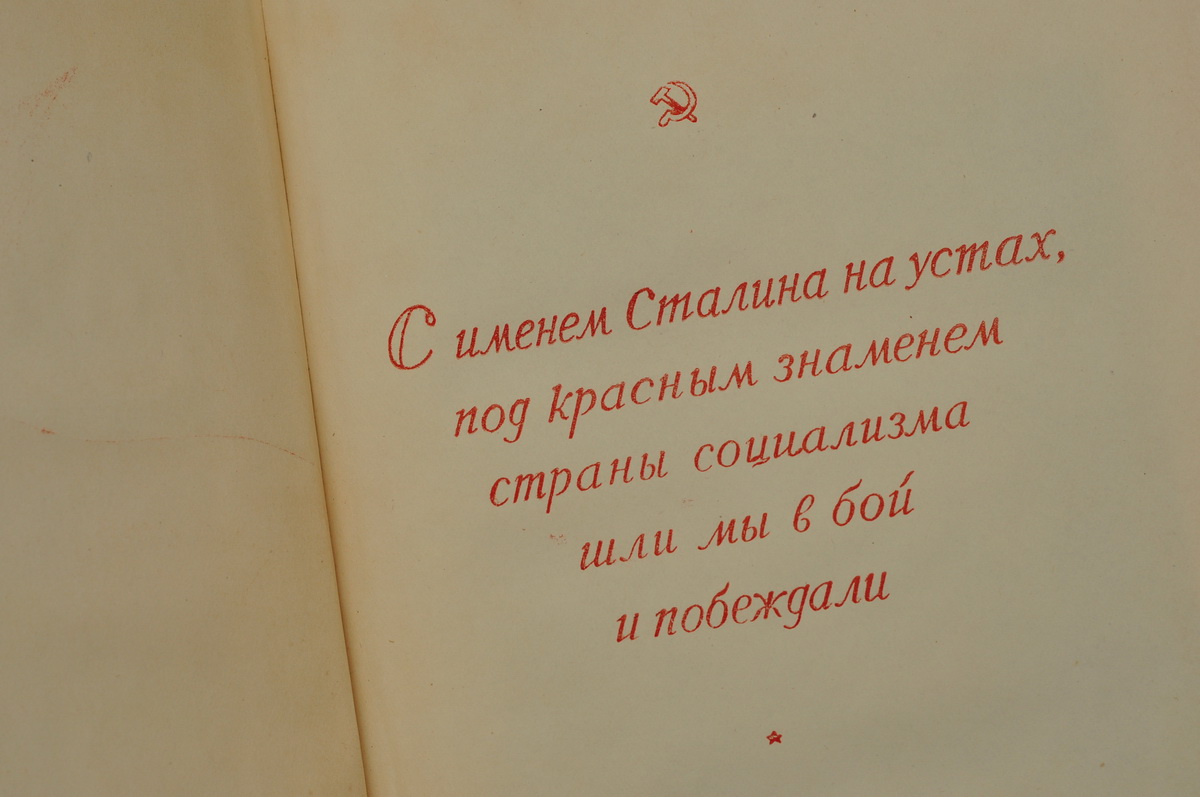 С именем Сталина на устах,
под красным знаменем
страны социализма
шли мы в бой
и побеждали